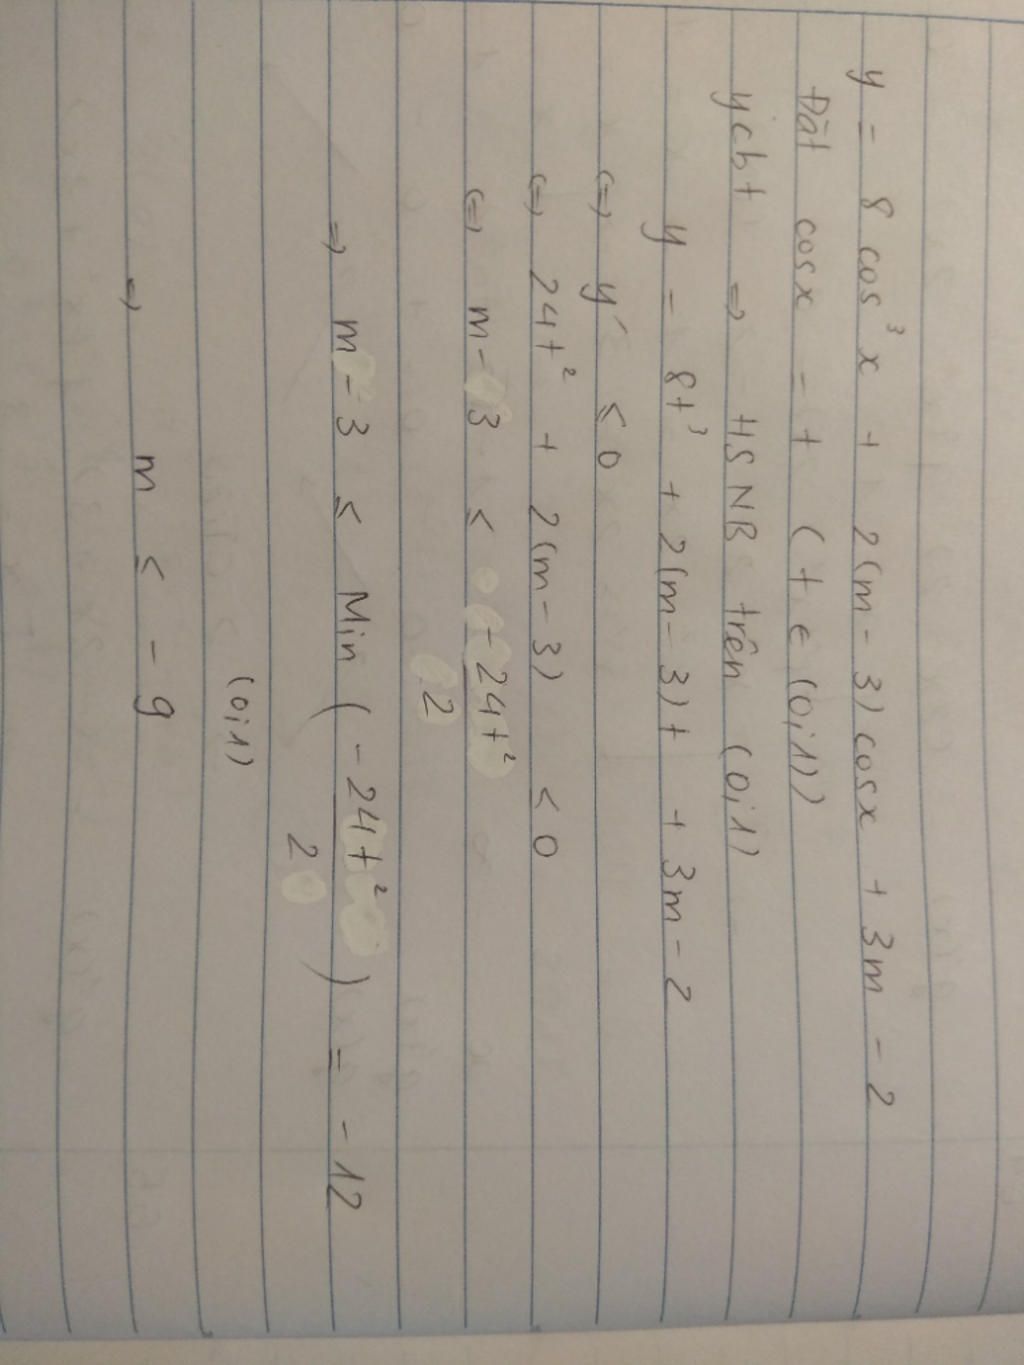 y = 8 cos³x + 2(m - 3) cosx + 3m - 2
Đặt cosx = t (t ∈ (0;1))
ycbt => HSNB trên (0;1)
y = 8t³ + 2(m-3)t + 3m - 2
(=) y' ≤ 0
(=) 24t² + 2(m-3) < 0
(=) m - 3 < -24t²/2
=> m - 3 ≤ Min (-24t²/2) = -12
(0;1)
=> m ≤ -9